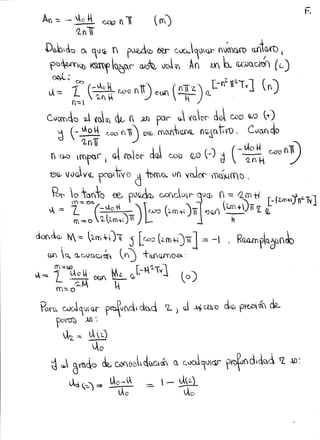 F.
An = - μoH / 2nπ cos nπ (m)
Debido a que n puede ser cualquier número entero,
podemos reemplazar este valor An en la ecuación (c)
así:
u = Σ n=1 ∞ (-μoH / 2nH cos nπ) sen (nπz / H) e [-n² π² Tv] (n)
Cuando el valor de n es par el valor del cos es (+)
y (-μoH / 2nπ cos nπ) se mantiene negativo. Cuando
n es impar, el valor del cos es (-) y (-μoH / 2nH cos nπ)
se vuelve positivo y toma un valor máximo.
Por lo tanto se puede concluir que n = 2m+1
u = Σ m=0 m=∞ (-μoH / 2(2m+1)π) [cos (2m+1)π] sen (2m+1)π z / H e [-(2m+1)²π²Tv]
donde M = (2m+1)π y [cos (2m+1)π] = -1 . Reemplazando
en la ecuación (n) tenemos:
u = Σ m=0 m=∞ μoU / 2M sen Mz / H e [-M²Tv] (o)
Para cualquier profundidad z, el exceso de presión de
poros es:
Uz = u(z) / uo
y el grado de consolidación a cualquier profundidad z es:
Ud (z) = uo-u / uo = 1 - u(z) / uo